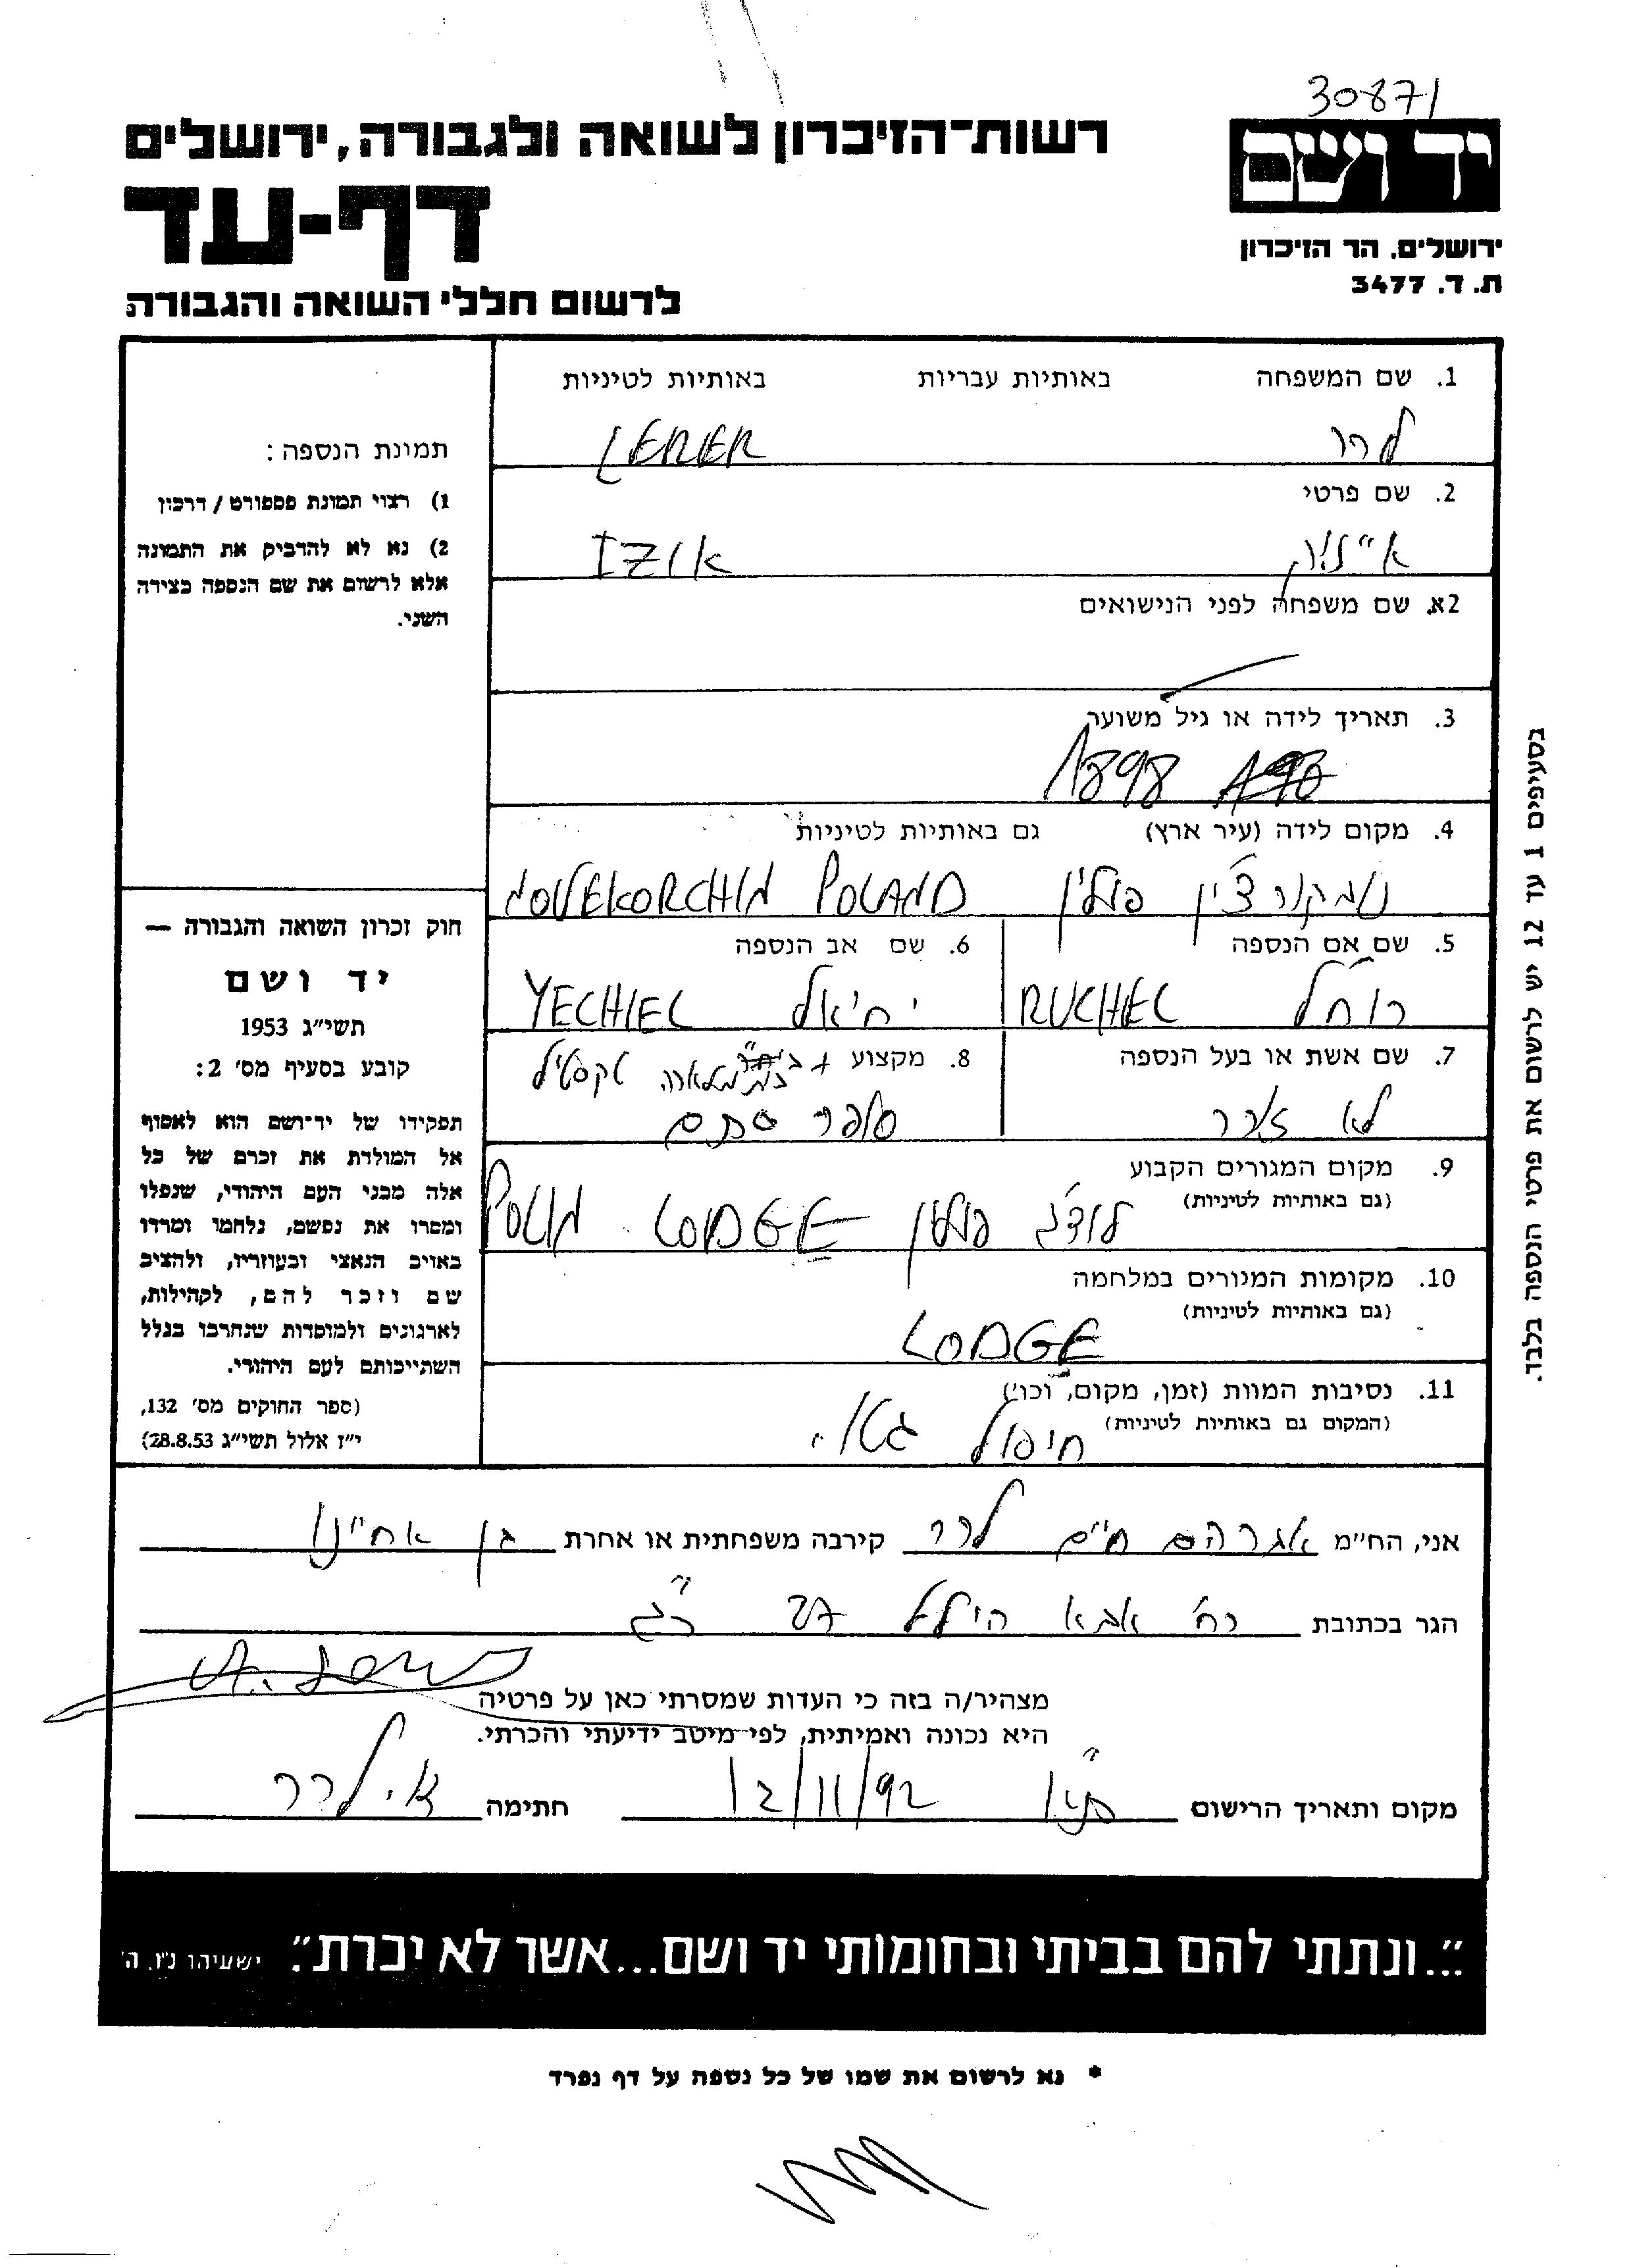 30871
יד ושם
ירושלים. הר הזיכרון
ת. ד. 3477
רשות־הזיכרון לשואה ולגבורה, ירושלים
דף-עד
לרשום חללי השואה והגבורה
1. שם המשפחה באותיות עבריות באותיות לטיניות
לרר LERER
2. שם פרטי
איציק IZIK
2א. שם משפחה לפני הנישואים
3. תאריך לידה או גיל משוער
1898
4. מקום לידה (עיר ארץ) גם באותיות לטיניות
פולין NOVEKORCHIN POLAND
5. שם אם הנספה
רוחל RUCHEL
6. שם אב הנספה
יחיאל YECHIEL
7. שם אשת או בעל הנספה
לא זוכר
8. מקצוע
טקסטיל
סופר סתם
9. מקום המגורים הקבוע
(גם באותיות לטיניות)
לודג' פולין LODGE POLIN
10. מקומות המגורים במלחמה
(גם באותיות לטיניות)
LODGE
11. נסיבות המוות (זמן, מקום, וכו')
(המקום גם באותיות לטיניות)
חיסול גטו.
תמונת הנספה:
1) רצוי תמונת פספורט / דרכון
2) נא לא להדביק את התמונה
אלא לרשום את שם הנספה בצידה
השני.
חוק זכרון השואה והגבורה —
יד ושם
תשי״ג 1953
קובע בסעיף מס׳ 2:
תפקידו של יד־ושם הוא לאסוף
אל המולדת את זכרם של כל
אלה מבני העם היהודי, שנפלו
ומסרו את נפשם, נלחמו ומרדו
באויב הנאצי ובעוזריו, ולהציב
שם וזכר להם, לקהילות,
לארגונים ולמוסדות שנחרבו בגלל
השתייכותם לעם היהודי.
(ספר החוקים מס׳ 132,
י״ז אלול תשי״ג 28.8.53)
בסעיפים 1 עד 12 יש לרשום את פרטי הנספה בלבד.
אני, הח״מ אברהם חיים לרר קירבה משפחתית או אחרת בן אחיינו
הגר בכתובת רח' אבא הילל 27 ר"ג
מצהיר/ה בזה כי העדות שמסרתי כאן על פרטיה
היא נכונה ואמיתית, לפי מיטב ידיעתי והכרתי.
מקום ותאריך הרישום ת"א 12/11/92 חתימה א. לרר
״...ונתתי להם בביתי ובחומותי יד ושם...אשר לא יכרת״. ישעיהו נ״ו, ה׳
* נא לרשום את שמו של כל נספה על דף נפרד